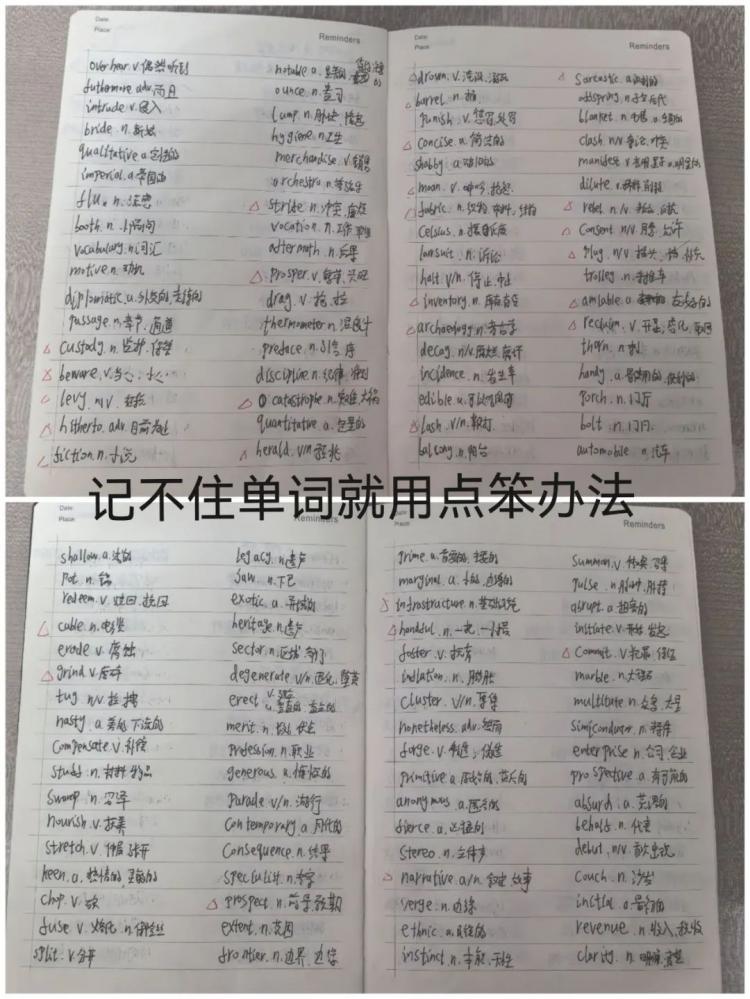 Date:
Place:
Reminders
overhear. v. 偶然听到
futhermore adv. 而且
intrude v. 侵入
bride. n. 新娘
qualitative a. 定性的
imperial. a. 帝国的
flu. n.
booth. n.
vocabulary. n 词汇
motive. n. 动机
diplomatic. a. 外交的
passage. n. 章节. 通道
custody. n. 监护.
beware. v. 当心
levy. n/v.
hitherto. adv. 目前为止
fiction. n. 小说
notable a.
ounce. n. 盎司
lump. n. 肿块
hygiene. n. 卫生
merchandise. v. 销售
orchestra. n. 管弦乐
stride. n.
vocation. n. 工作
aftermath. n. 后果
prosper. v. 繁荣. 兴旺
drag. v. 拖. 拉
thermometer n. 温度计
preface. n. 引言 序
discipline. n. 纪律
catastrophe. n.
quantitative. a. 定量的
herald. v/n 预兆
Date:
Place:
Reminders
drown. v. 淹没. 溺死
barrel. n. 桶
punish. v. 惩罚. 处罚
concise. a. 简洁的
shabby. a.
moan. v. 呻吟
fabric. n. 织物
Celsius. n. 摄氏度
lawsuit. n. 诉讼
halt. v/n. 停止. 中止
inventory. n.
archaeology. n. 考古学
decay. n/v. 腐烂.
incidence. n. 发生率
edible. a. 可以吃的
lash. v/n.
balcony. n. 阳台
Sarcastic. a. 讽刺的
offspring. n. 子女 后代
blanket. n.
clash. n/v. 争论. 冲突
manifest. v.
dilute. v. 稀释
rebel. n/v.
Consent. n/v. 同意 允许
plug. n/v. 插头
trolley. n. 手推车
amiable. a. 友好的
reclaim. v. 开垦.
thorn. n. 刺
handy. a. 便利的
porch. n. 门厅
bolt. n. 门闩
automobile. n. 汽车
记不住单词就用点笨办法
Date:
Place:
Reminders
shallow. a. 浅的
Pot. n. 锅
redeem. v. 赎回.
cable. n. 电缆
erode v. 腐蚀
grind v.
tug. n/v 拉. 拽
nasty. a. 下流的
Compensate. v. 补偿
stuff. n. 材料 物品
Swamp. n. 沼泽
nourish. v. 培养
stretch. v. 伸展 张开
keen. a. 热情的
chop. v. 砍
fuse. v. 熔化. n. 保险丝
split. v. 分开
legacy. n 遗产
Jaw. n. 下巴
exotic. a. 异域的
heritage. n. 遗产
Sector. n. 区域. 部门
degenerate v/n. 退化. 堕落
erect v.
a. 垂直的. 直立的
merit. n. 优点
Profession. n. 职业
generous. a. 慷慨的
Parade. v/n. 游行
Contemporary. a. 同代的
Consequence. n. 结果
specialist. n. 专家
prospect. n. 前景
extent. n. 范围
frontier. n. 边界. 边缘
Reminders
prime. a. 首要的. 主要的
marginal. a. 边缘的
infrastructure. n. 基础设施
handful. n. 一把. 一小部
foster. v. 抚养
inflation. n. 膨胀
Cluster. v/n. 聚集
nonetheless. adv. 然而
forge. v. 伪造
primitive a. 原始的.
anonymous. a. 匿名的
fierce. a.
Stereo. n. 立体声
narrative. a/n. 叙述 故事
verge. n. 边缘
ethnic. a. 民族的
instinct. n. 本能. 天性
Summon. v. 召唤
pulse. n. 脉冲. 脉搏
abrupt. a. 突然的
initiate. v. 开始 发起
Commit. v. 犯罪.
marble. n. 大理石
multitute. n. 众多. 大量
Semiconductor. n.
enterprise. n. 公司. 企业
prospective. a. 有可能的
absurd. a. 荒谬的
behalf. n. 代表
debut. n/v. 首次出现
couch. n. 沙发
initial. a. 最初的
revenue. n. 收入. 税收
clarity. n. 明晰. 清楚